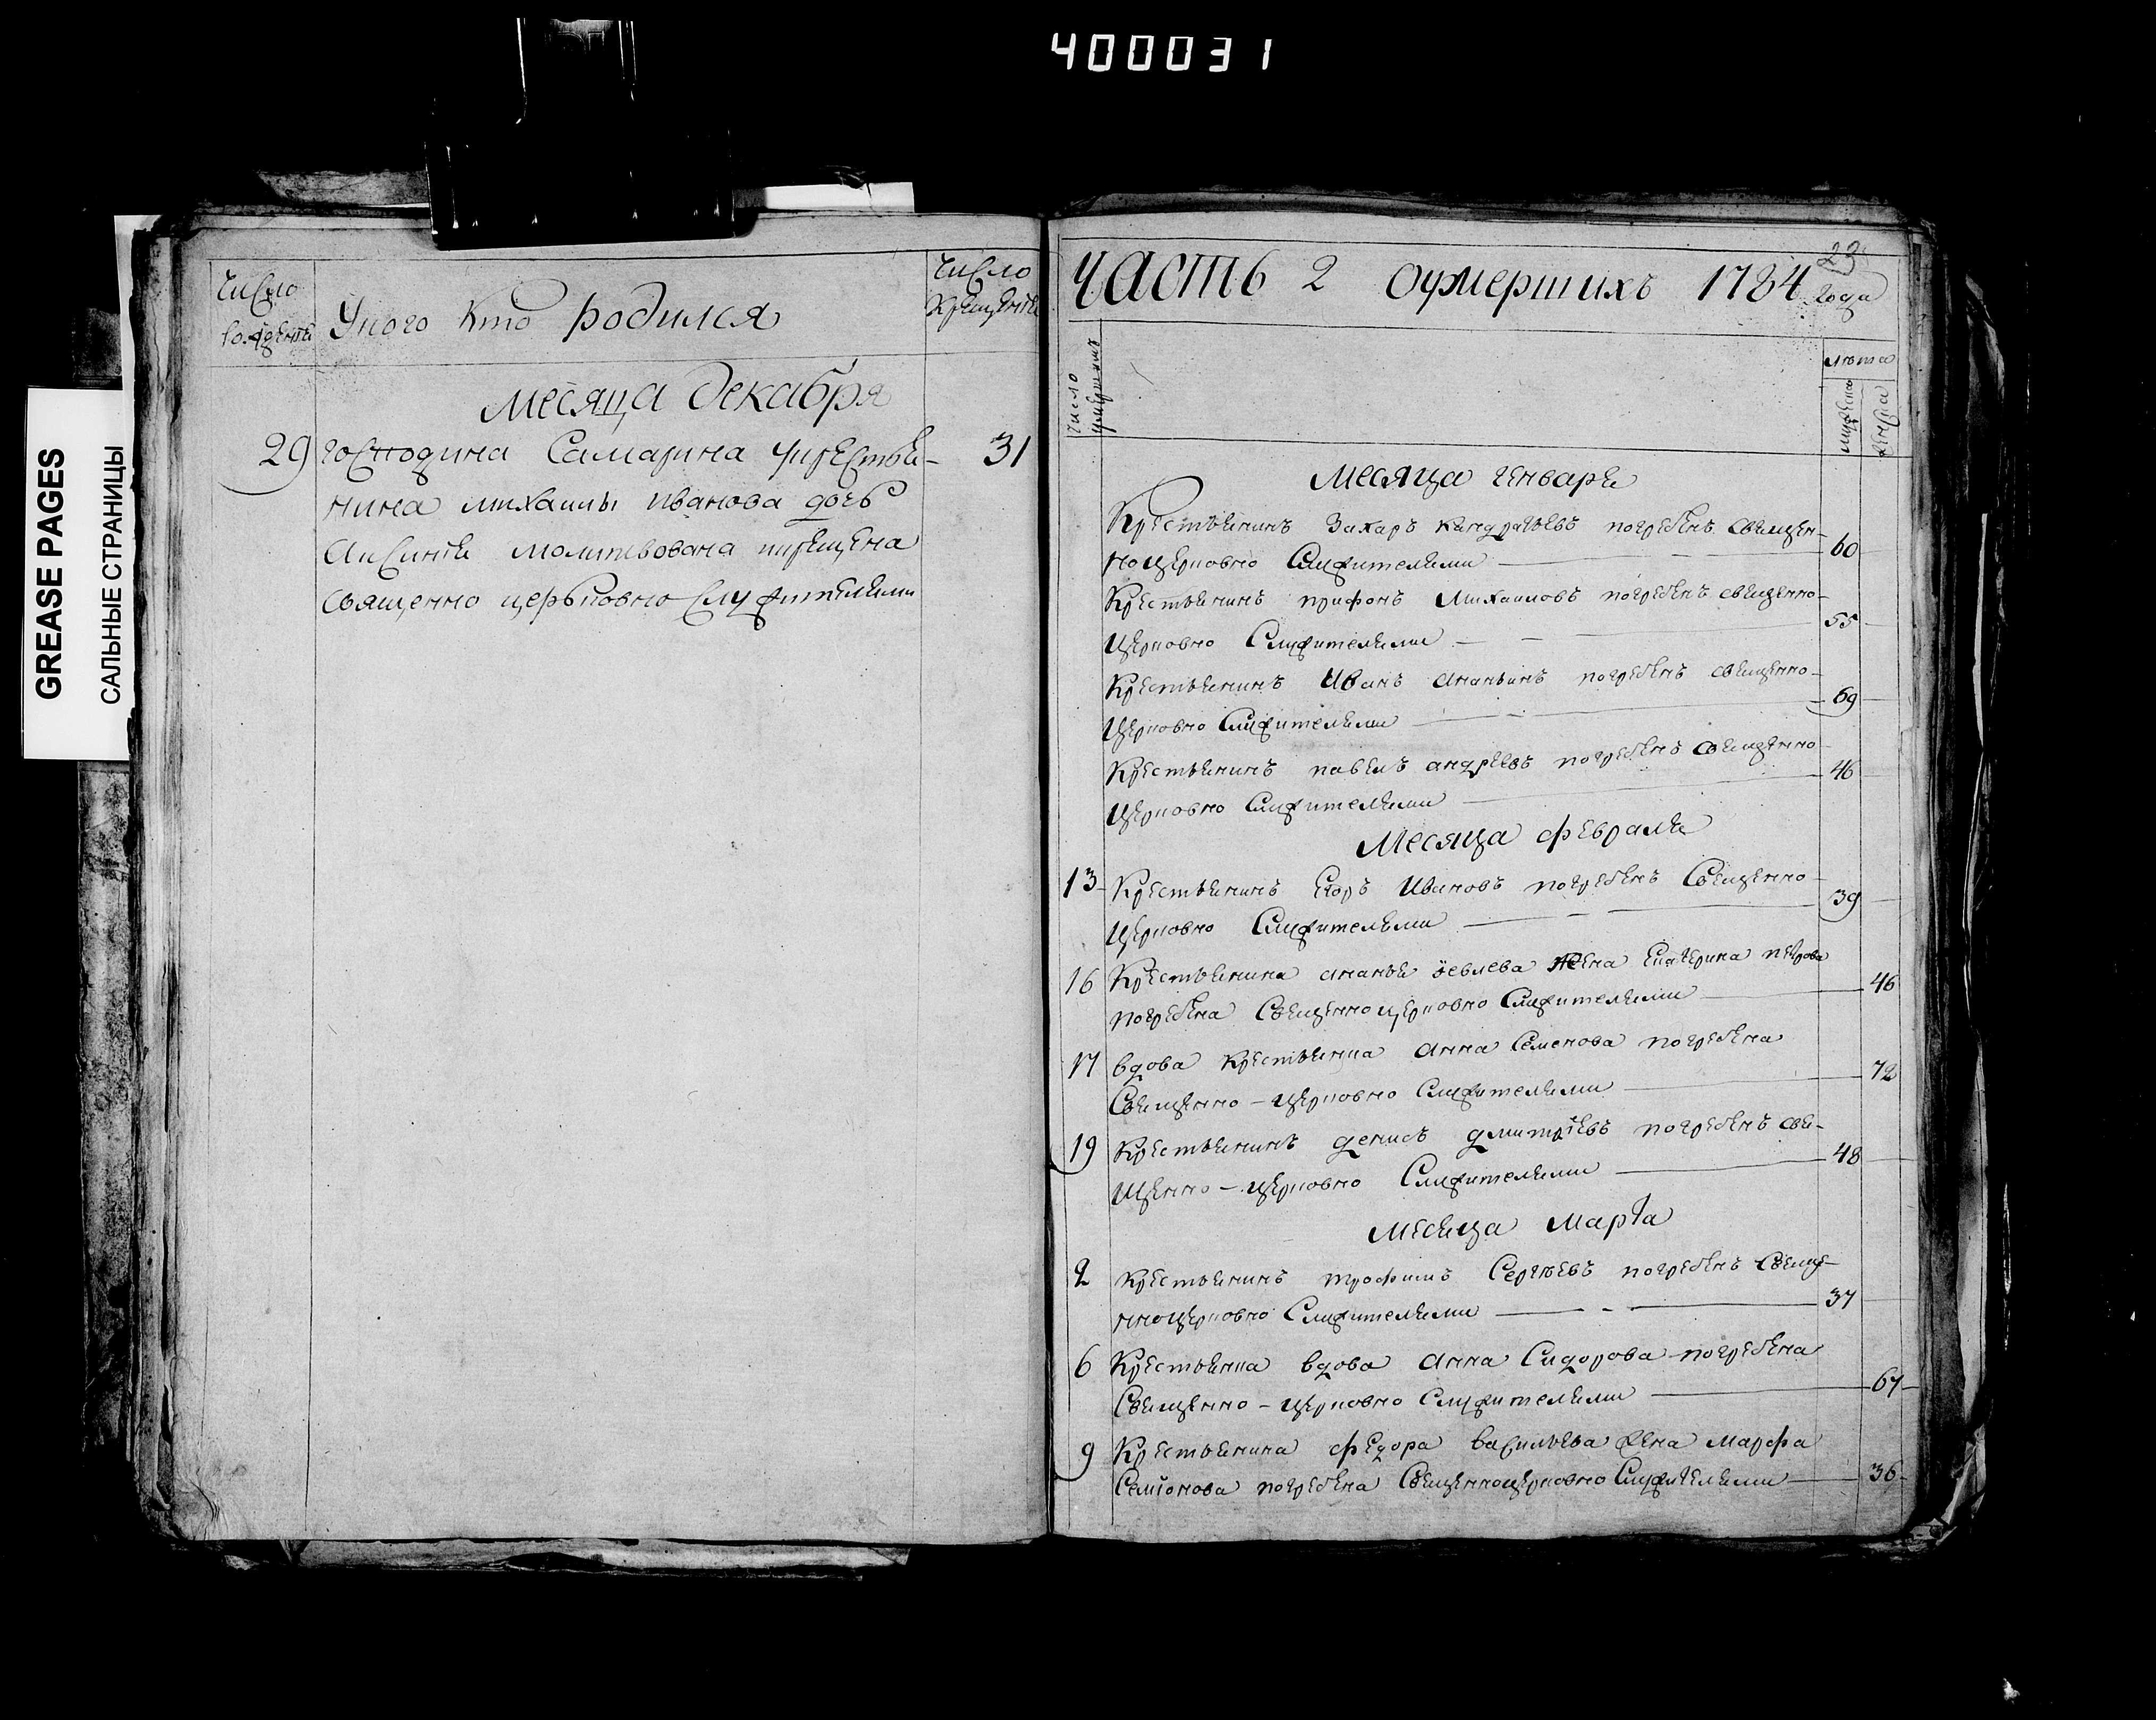 400031
GREASE PAGES
САЛЬНЫЕ СТРАНИЦЫ
Число
рождения
Укого кто родился
Число
крещения
месяца декабря
29 господина Самарина укрестья- 31
нина михаилы иванова дочь
Аксиния молитвована икрещена
священно церьковно служителями
23
часть 2 оумершихъ 1784 года
число
умершихъ
лѣта
мужеска
женска
Месяца генваря
Крестьянинъ Захаръ кандратьевъ погребенъ священ-
ноцерковно Служителями 60
Крестьянинъ трифонъ Михаиловъ погребенъ священно-
церковно Служителями 55
Крестьянинъ Иванъ Ананьинъ погребенъ священно-
церковно Служителями 69
Крестьянинъ павелъ андреевъ погребенъ священно
церковно Служителями 46
Месяца февраля
13 Крестьянинъ Егоръ Ивановъ погребенъ Священно-
церковно Служителями 39
16 Крестьянина ананьи жена Екатерина петрова
погребена Священноцерковно Служителями 46
17 вдова крестьянка Анна Семенова погребена
Священно-церковно Служителями 72
19 Крестьянинъ денисъ дмитріевъ погребенъ свя-
щенно-церковно Служителями 48
месяца марта
2 крестьянинъ трофимъ Сергѣевъ погребенъ Свяще-
нноцерковно Служителями 37
6 Крестьянка вдова Анна Сидорова погребена
Священно-церковно Служителями 67
9 Крестьянина федора васильева жена марфа
Семіонова погребена Священноцерковно Служителями 36